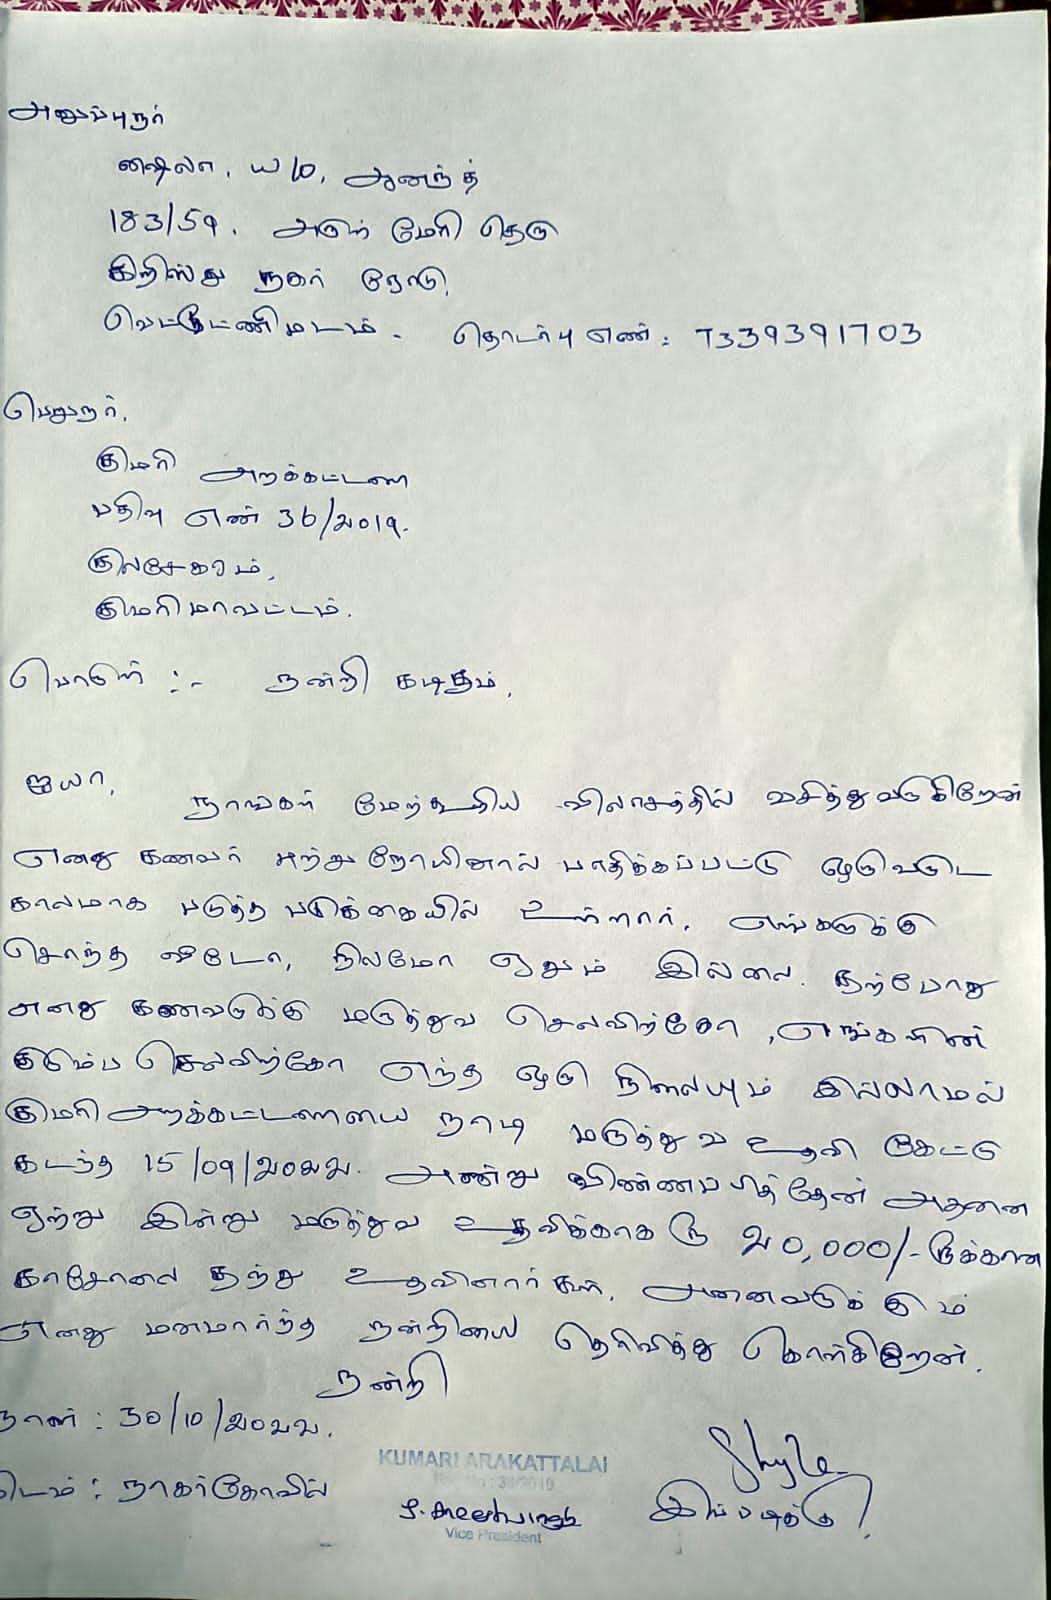 அனுப்புநர்
ஷைலா, W/O, ஆனந்த்
183/59, அருள் மேரி தெரு
கிறிஸ்து நகர் ரோடு,
வெட்டூர்ணிமடம். தொடர்பு எண்: 7339391703
பெறுநர்,
குமரி அறக்கட்டளை
பதிவு எண் 36/2019.
குலசேகரம்,
குமரிமாவட்டம்.
பொருள் :- நன்றி கடிதம்.
ஐயா,
நாங்கள் மேற்கூறிய விலாசத்தில் வசித்து வருகிறேன்
எனது கணவர் புற்று நோயினால் பாதிக்கப்பட்டு ஒருவருட
காலமாக படுத்த படுக்கையில் உள்ளார். எங்களுக்கு
சொந்த வீடோ, நிலமோ ஏதும் இல்லை. தற்போது
எனது கணவருக்கு மருத்துவ செலவிற்கோ, எங்களின்
குடும்ப செலவிற்கோ எந்த ஒரு நிலையும் இல்லாமல்
குமரி அறக்கட்டளையை நாடி மருத்துவ உதவி கேட்டு
கடந்த 15/09/2022. அன்று விண்ணப்பித்தேன் அதனை
ஏற்று இன்று மருத்துவ உதவிக்காக ரூ 20,000/- ருக்கான
காசோலை தந்து உதவினார்கள். அனைவருக்கும்
எனது மனமார்ந்த நன்றியை தெரிவித்து கொள்கிறேன்.
நன்றி
நாள் : 30/10/2022.
இடம் : நாகர்கோவில்
KUMARI ARAKATTALAI
Reg. No : 36/2019
Vice President
Shyla
இப்படிக்கு